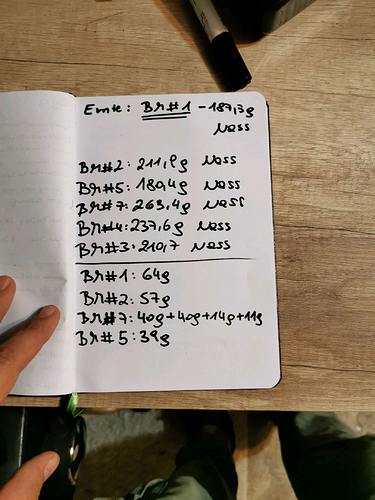 Ernte: Br#1 - 187,3g
Nass
Br#2: 211,8g Nass
Br#5: 180,4g Nass
Br#7: 263,4g Nass
Br#4: 237,6g Nass
Br#3: 210,7 Nass
Br#1: 64g
Br#2: 57g
Br#7: 40g+40g+14g+11g
Br#5: 39g